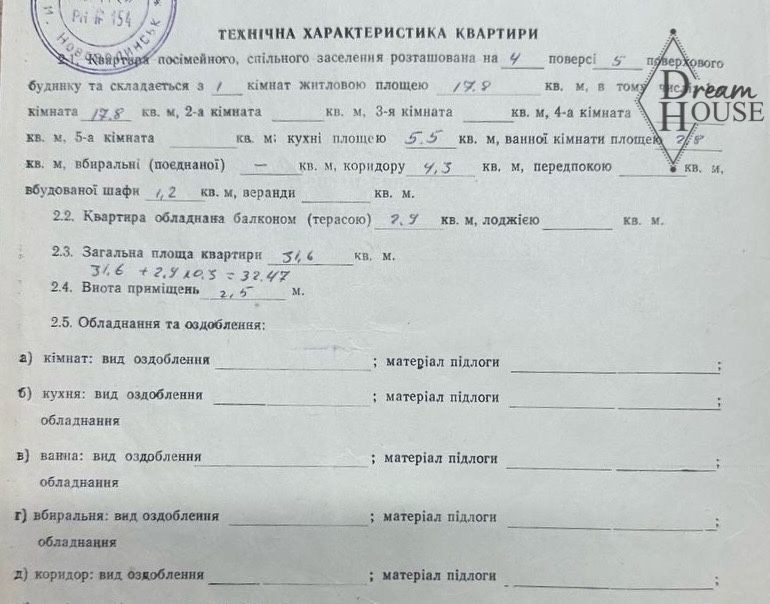 РМ № 154
м. Нововолинськ *
Dream
HOUSE
ТЕХНІЧНА ХАРАКТЕРИСТИКА КВАРТИРИ
2.1. Квартира посімейного, спільного заселення розташована на 4 поверсі 5 поверхового
будинку та складається з 1 кімнат житловою площею 17.8 кв. м, в тому числі
кімната 17.8 кв. м, 2-а кімната кв. м, 3-я кімната кв. м, 4-а кімната
кв. м, 5-а кімната кв. м; кухні площею 5.5 кв. м, ванної кімнати площею 2,8
кв. м, вбиральні (поєднаної) — кв. м, коридору 4,3 кв. м, передпокою кв. м,
вбудованої шафи 1,2 кв. м, веранди кв. м.
2.2. Квартира обладнана балконом (терасою) 2.9 кв. м, лоджією кв. м.
2.3. Загальна площа квартири 31,6 кв. м.
31.6 + 2,9 х 0.3 = 32.47
2.4. Висота приміщень 2,5 м.
2.5. Обладнання та оздоблення:
а) кімнат: вид оздоблення ; матеріал підлоги ;
б) кухня: вид оздоблення ; матеріал підлоги ;
обладнання
в) ванна: вид оздоблення ; матеріал підлоги ;
обладнання
г) вбиральня: вид оздоблення ; матеріал підлоги ;
обладнання
д) коридор: вид оздоблення ; матеріал підлоги ;